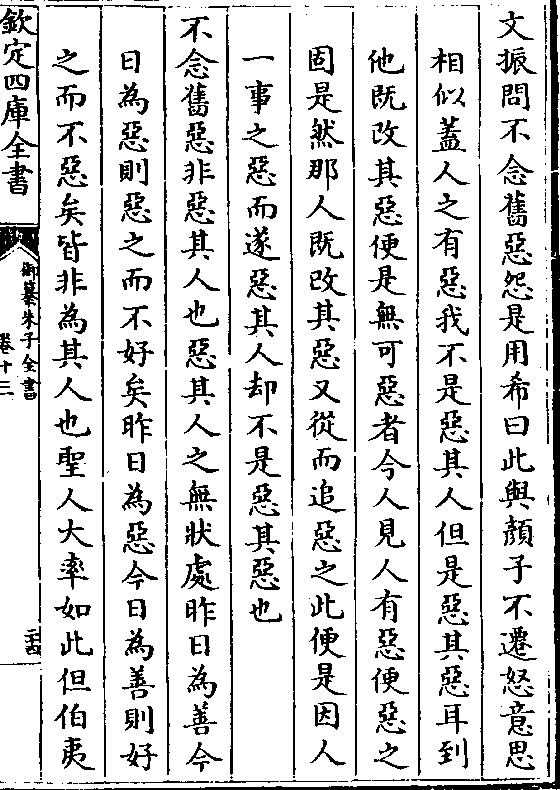 文振問不念舊惡怨是用希曰此與顔子不遷怒意思
相似蓋人之有惡我不是惡其人但是惡其惡耳到
他既改其惡便是無可惡者今人見人有惡便惡之
固是然那人既改其惡又從而追惡之此便是因人
一事之惡而遂惡其人却不是惡其惡也
不念舊惡非惡其人也惡其人之無狀處昨日為善今
日為惡則惡之而不好矣昨日為惡今日為善則好
之而不惡矣皆非為其人也聖人大率如此但伯夷
欽定四庫全書
御纂朱子全書
卷十三